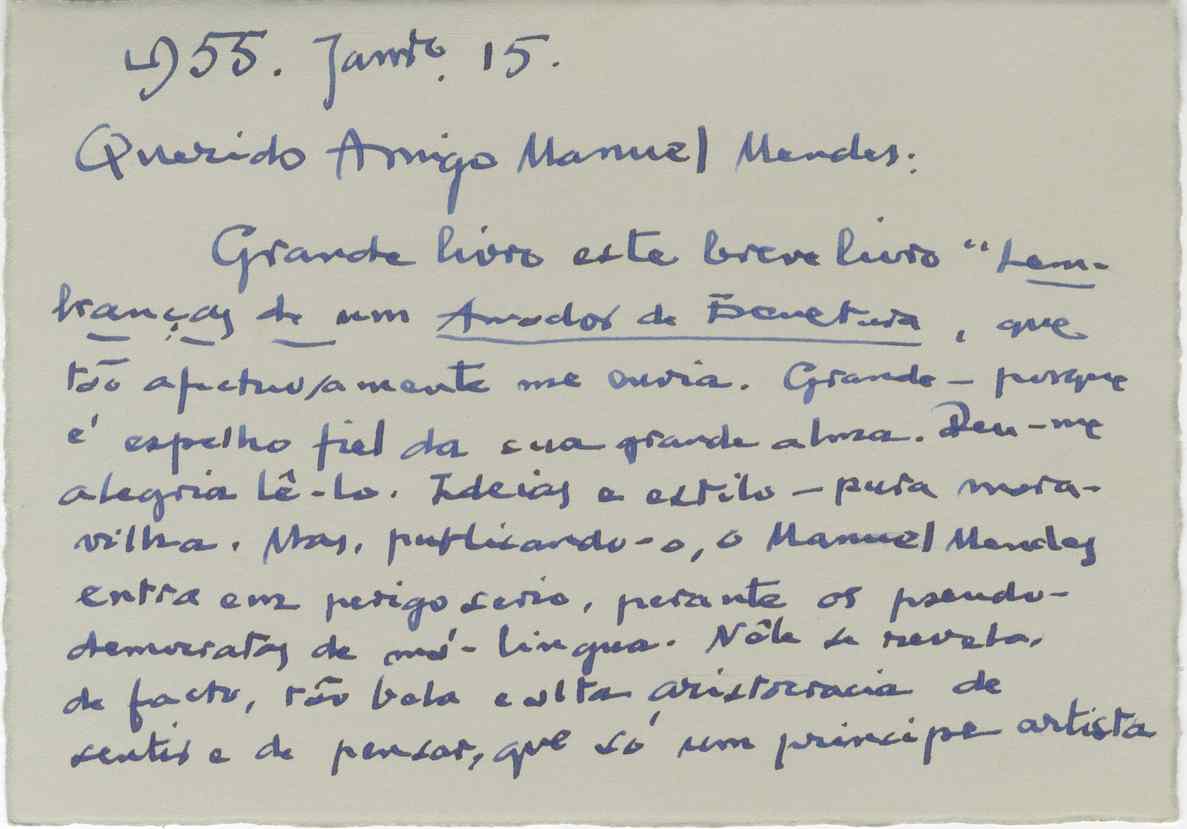 1955. Janro. 15.
Querido Amigo Manuel Mendes:
Grande livro este breve livro "Lem-
branças de um Amador de Escultura, que
tão afectuosamente me envia. Grande – porque
é espelho fiel da sua grande alma. Deu-me
alegria lê-lo. Ideias e estilo – pura mara-
vilha. Mas, publicando-o, o Manuel Mendes
entra em perigo serio, perante os pseudo-
democratas de má-lingua. Nêle se revela,
de facto, tão bela e alta aristocracia de
sentir e de pensar, que só um principe artista